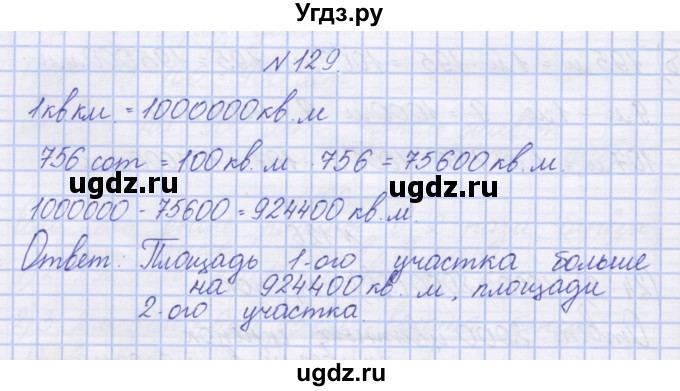 Угдз.ру
N129.
1 кв км. = 1000000 кв. м
756 сот = 100 кв. м · 756 = 75600 кв. м.
ugdz.ru ugdz.ru
1000000 - 75600 = 924400 кв. м.
Ответ: Площадь 1-ого участка больше
на 924400 кв. м, площади
2-ого участка.
ugdz.ru ugdz.ru